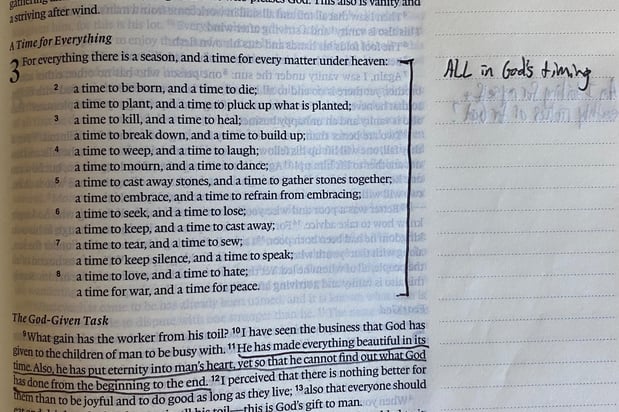 pleases God. This also is vanity and
a striving after wind.
A Time for Everything
3 For everything there is a season, and a time for every matter under heaven:
ALL in God's timing
2 a time to be born, and a time to die;
a time to plant, and a time to pluck up what is planted;
3 a time to kill, and a time to heal;
a time to break down, and a time to build up;
4 a time to weep, and a time to laugh;
a time to mourn, and a time to dance;
5 a time to cast away stones, and a time to gather stones together;
a time to embrace, and a time to refrain from embracing;
6 a time to seek, and a time to lose;
a time to keep, and a time to cast away;
7 a time to tear, and a time to sew;
a time to keep silence, and a time to speak;
8 a time to love, and a time to hate;
a time for war, and a time for peace.
The God-Given Task
9 What gain has the worker from his toil? 10 I have seen the business that God has
given to the children of man to be busy with. 11 He has made everything beautiful in its
time. Also, he has put eternity into man's heart, yet so that he cannot find out what God
has done from the beginning to the end. 12 I perceived that there is nothing better for
them than to be joyful and to do good as long as they live; 13 also that everyone should
his toil—this is God's gift to man.